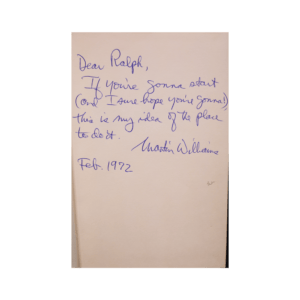 Dear Ralph,
If you're gonna start
(and I sure hope you're gonna!),
this is my idea of the place
to do it.
Martin Williams
Feb. 1972